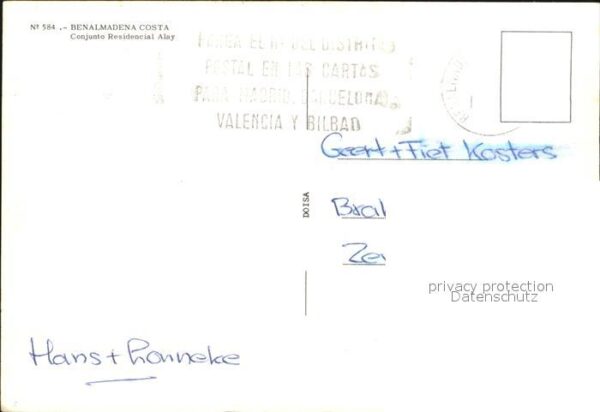 Nº 584 .- BENALMADENA COSTA
Conjunto Residencial Alay
PONGA EL Nº DEL DISTRITO
POSTAL EN LAS CARTAS
PARA MADRID, BARCELONA,
VALENCIA Y BILBAO
Geert + Fiet Kosters
DOISA
Bral
Zev
privacy protection
Datenschutz
Hans + Lonneke